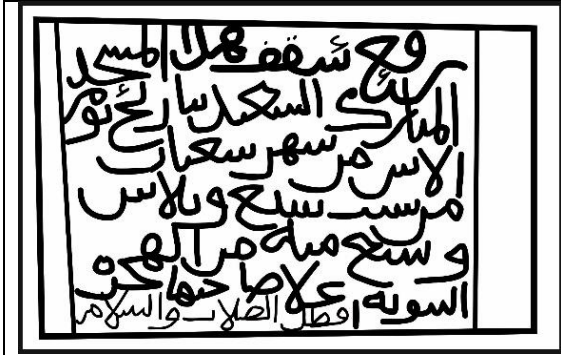 رفع سقف هدا المسجد
المبارك السعيد بتاريخ يوم
الاثنين من شهر شعبان
من سنت سبع وثلاثين
و سبع مية من
النبوية علا صاحبها
افضل الصلات والسلام